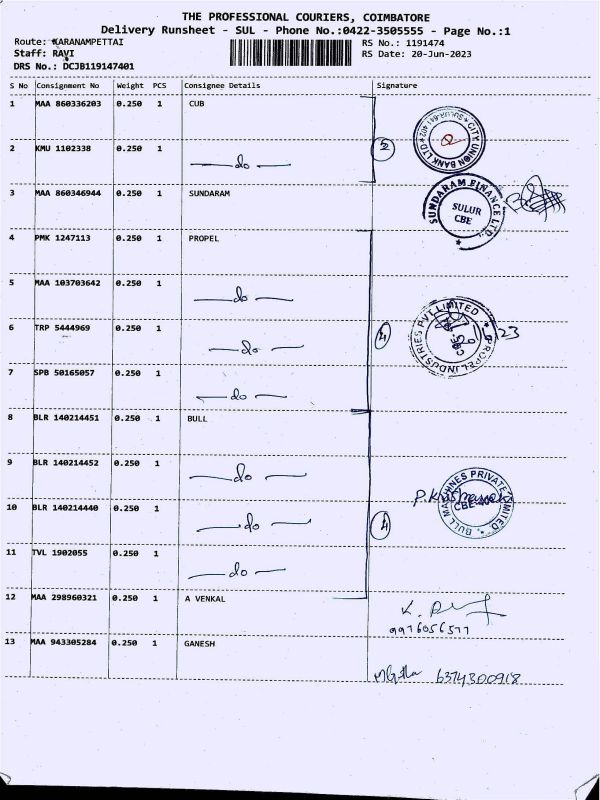 THE PROFESSIONAL COURIERS, COIMBATORE
Delivery Runsheet - SUL - Phone No.:0422-3505555 - Page No.:1
Route: KARANAMPETTAI RS No.: 1191474
Staff: RAVI RS Date: 20-Jun-2023
DRS No.: DCJB119147401
S No Consignment No Weight PCS Consignee Details Signature
1 MAA 860336203 0.250 1 CUB
CITY UNION BANK LTD
2 KMU 1102338 0.250 1 do 2
3 MAA 860346944 0.250 1 SUNDARAM
SUNDARAM FINANCE LTD.
SULUR
CBE
4 PMK 1247113 0.250 1 PROPEL
5 MAA 103703642 0.250 1 do
6 TRP 5444969 0.250 1 do 4
PROPEL INDUSTRIES PVT LIMITED
23
7 SPB 50165057 0.250 1 do
8 BLR 140214451 0.250 1 BULL
9 BLR 140214452 0.250 1 do
BULL MACHINES PRIVATE LIMITED
10 BLR 140214440 0.250 1 do 4
11 TVL 1902055 0.250 1 do
12 MAA 298960321 0.250 1 A VENKAL
9976056577
13 MAA 943305284 0.250 1 GANESH
6374300918